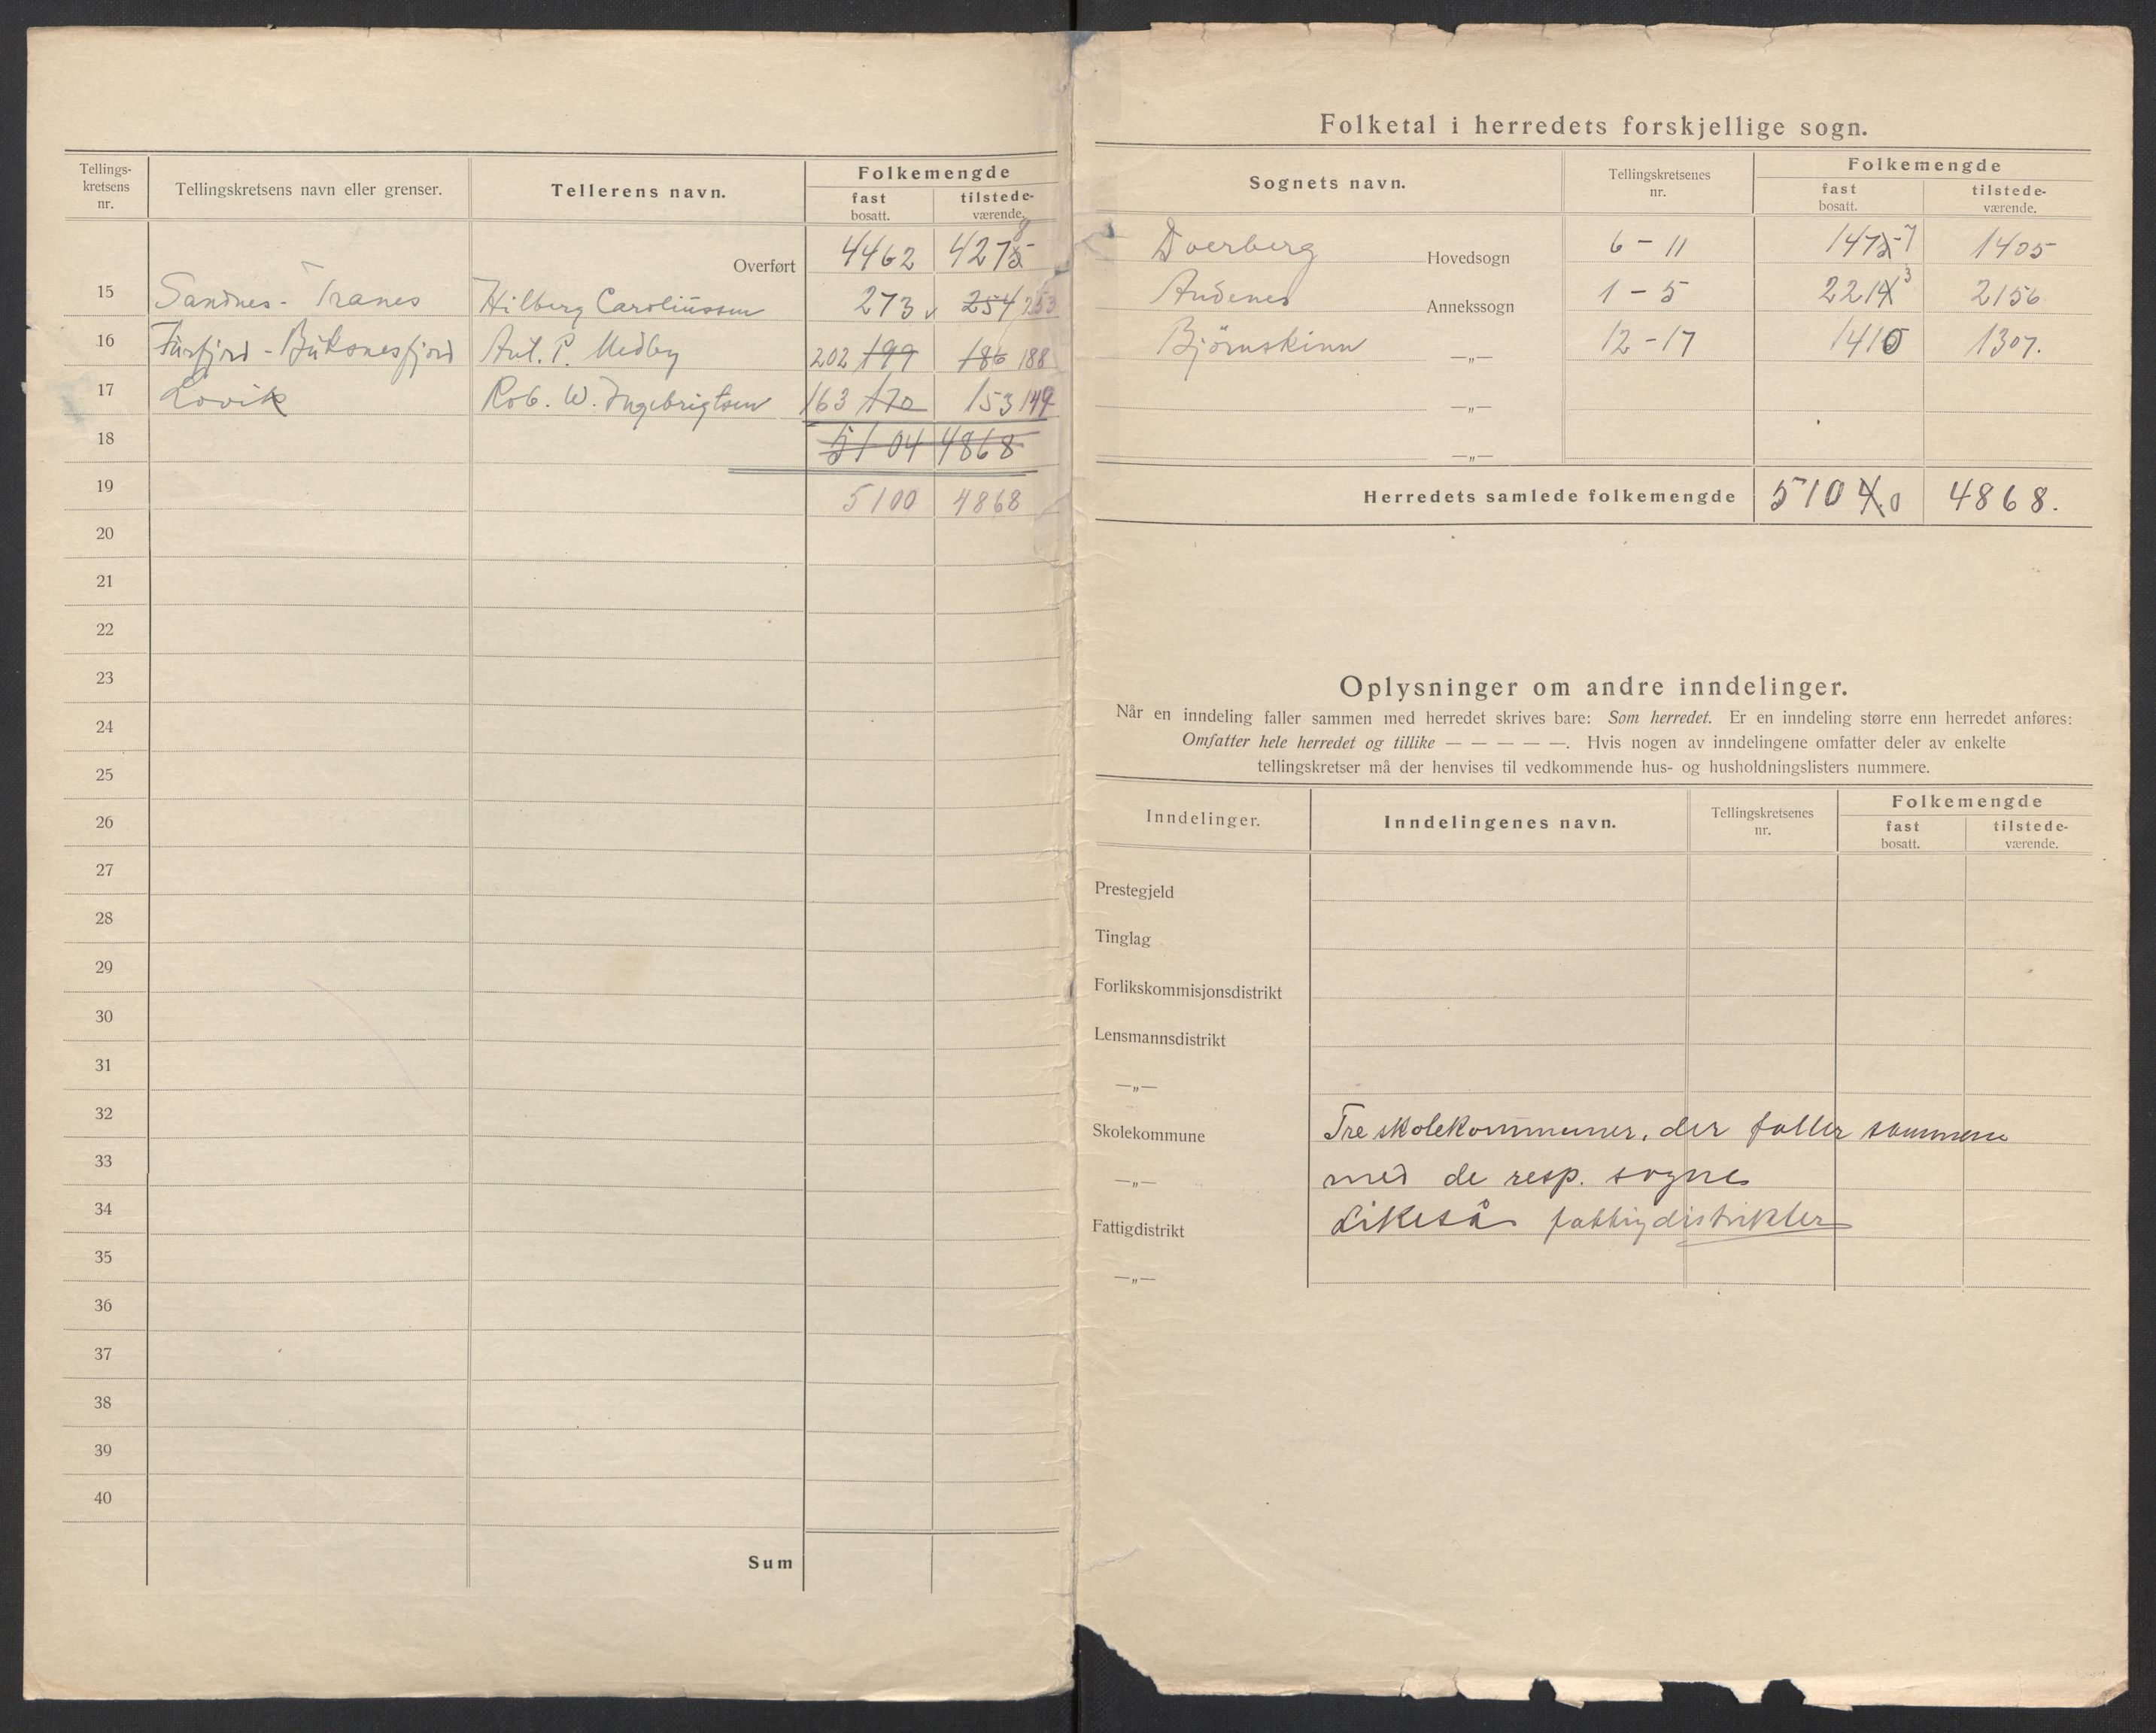 Tellings-
kretsens
nr.
Tellingskretsens navn eller grenser.
Tellerens navn.
Folkemengde
fast
bosatt.
tilstede-
værende.
Overført 4462 4275 8
15 Sandnes - Tranes Hilberg Caroliussen 273 v 254 253
16 Forfjord - Buksnesfjord Ant. P. Medby 202 199 186 188
17 Lovik Rob. W. Ingebrigtsen 163 170 153 149
18 5104 4868
19 5100 4868
20
21
22
23
24
25
26
27
28
29
30
31
32
33
34
35
36
37
38
39
40
Sum
Folketal i herredets forskjellige sogn.
Sognets navn.
Tellingskretsenes
nr.
Folkemengde
fast
bosatt.
tilstede-
værende.
Dverberg Hovedsogn 6 - 11 147 7 1405
Andenes Annekssogn 1 - 5 2214 3 2156
Björnskinn —„— 12 - 17 1410 1307.
—„—
—„—
Herredets samlede folkemengde 5104 0 4868.
Oplysninger om andre inndelinger.
Når en inndeling faller sammen med herredet skrives bare: Som herredet. Er en inndeling større enn herredet anføres:
Omfatter hele herredet og tillike — — — — —. Hvis nogen av inndelingene omfatter deler av enkelte
tellingskretser må der henvises til vedkommende hus- og husholdningslisters nummere.
Inndelinger.
Inndelingenes navn.
Tellingskretsenes
nr.
Folkemengde
fast
bosatt.
tilstede-
værende.
Prestegjeld
Tinglag
Forlikskommisjonsdistrikt
Lensmannsdistrikt
—„—
Skolekommune Tre skolekommuner, der faller sammen
—„— med de resp. sogne
Fattigdistrikt Likeså fattigdistrikter
—„—